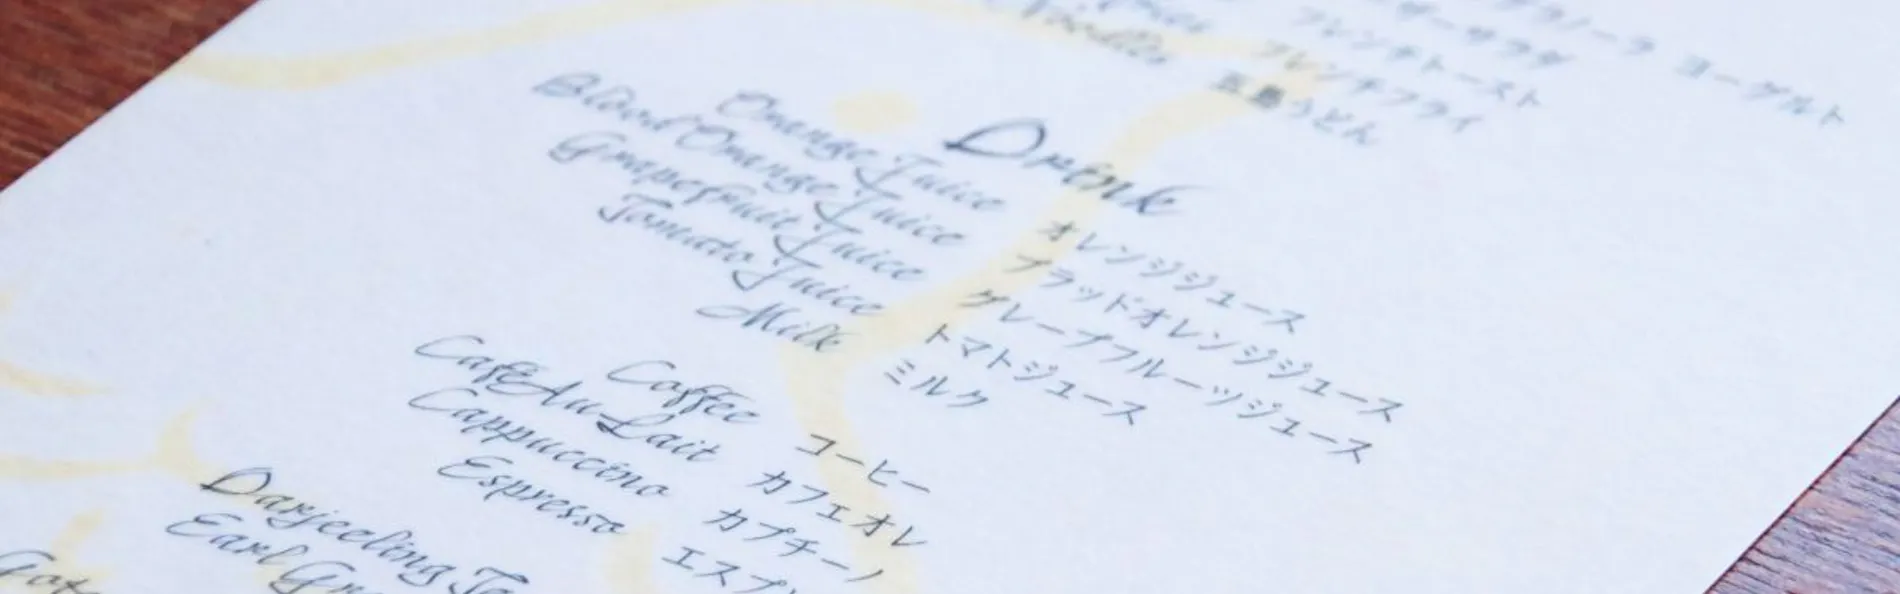 グラノーラ ヨーグルト
フレンチトースト
フレンチフライ
Noodles 五島うどん
Drink
Orange Juice オレンジジュース
Blood Orange Juice ブラッドオレンジジュース
Grapefruit Juice グレープフルーツジュース
Tomato Juice トマトジュース
Milk ミルク
Coffee コーヒー
Café Au Lait カフェオレ
Cappuccino カプチーノ
Espresso エスプ
Darjeeling Te
Earl Gr
Got